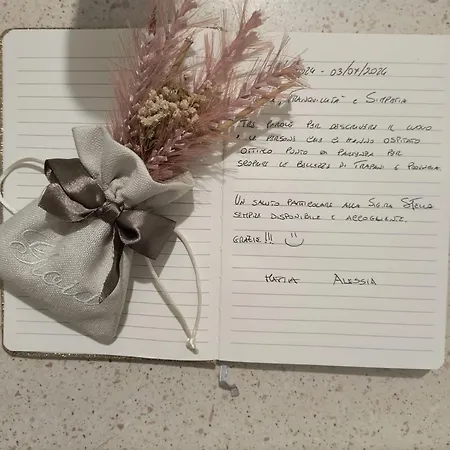 024 - 03/07/2024
TRANQUILLITÀ" E SIMPATIA
TRE PAROLE PER DESCRIVERE IL LUOGO
E LE PERSONE CHE CI HANNO OSPITATO
OTTIMO PUNTO DI PARTENZA PER
SCOPRIRE LE BELLEZZE DI TRAPANI E PROVINCIA.
UN SALUTO PARTICOLARE ALLA SIG.RA STELLA
SEMPRE DISPONIBILE E ACCOGLIENTE.
GRAZIE!!!
MATTIA ALESSIA
Gioia